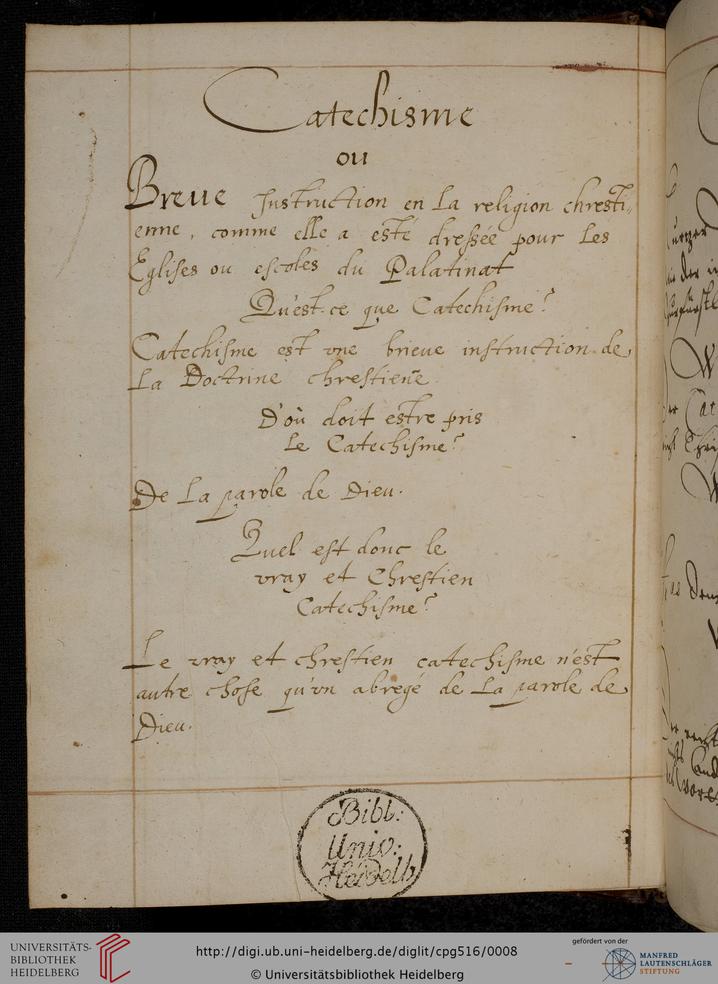 Catechisme
ou
Breue Instruction en La religion chresti„
enne, comme elle a esté dressée pour Les
Eglises ou escoles du Palatinat
Qu'est-ce que Catechisme?
Catechisme est vne brieue instruction de
La Doctrine chrestien̄e
D'où doit estre pris
Le Catechisme?
De La parole de Dieu.
Quel est donc le
vray et Chrestien
Catechisme?
Le vray et chrestien catechisme n'est
autre chose qu'vn abregé de La parole de
Dieu.
Bibl:
Univ:
Heidelb
UNIVERSITÄTS-
BIBLIOTHEK
HEIDELBERG
http://digi.ub.uni-heidelberg.de/diglit/cpg516/0008
© Universitätsbibliothek Heidelberg
gefördert von der
MANFRED
LAUTENSCHLÄGER
STIFTUNG